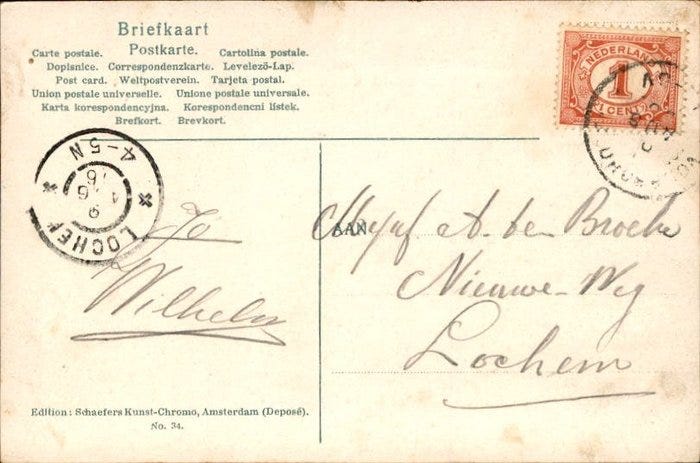 Briefkaart
Postkarte.
Carte postale. Cartolina postale.
Dopisnice. Correspondenzkarte. Levelező-Lap.
Post card. Weltpostverein. Tarjeta postal.
Union postale universelle. Unione postale universale.
Karta korespondencyjna. Korespondencni listek.
Brefkort. Brevkort.
NEDERLAND
1
1 CENT
4-5N
LOCHEM
Jo
Wilhelm
AAN
A. ten Broeke
Nieuwe-Weg
Lochem
Edition: Schaefers Kunst-Chromo, Amsterdam (Deposé).
No. 34.